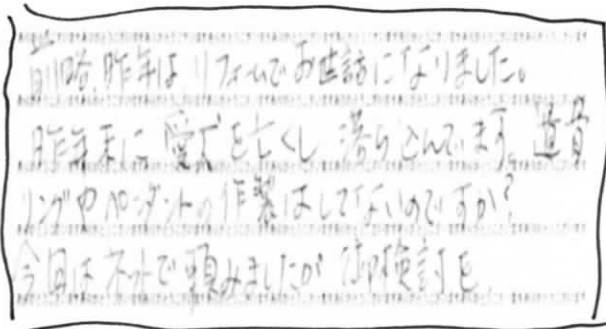 前略、昨年は、リフォームでお世話になりました。
昨年末に 愛犬を亡くし 落ちこんでます。遺骨
リングやペンダントの作製はしてないのですか?
今回はネットで頼みましたが 御検討を